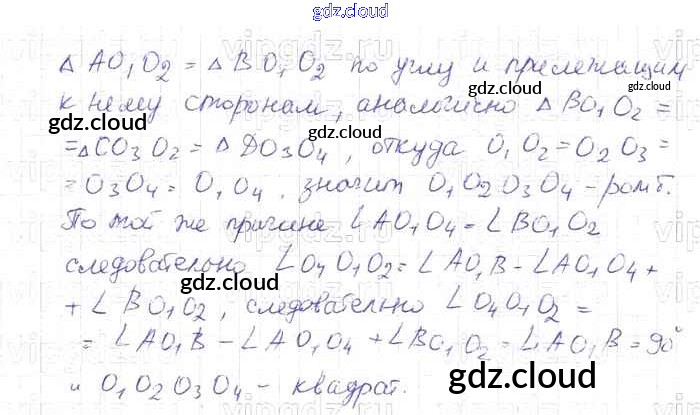 gdz.cloud
△ AO₁O₂ = △ BO₁O₂ по углу и прилежащим
к нему сторонам, аналогично △ BO₁O₂ =
= △CO₃O₂ = △ DO₃O₄, откуда O₁O₂ = O₂O₃ =
= O₃O₄ = O₁O₄, значит O₁O₂O₃O₄ – ромб.
По той же причине ∠AO₁O₄ = ∠BO₁O₂
следовательно ∠O₄O₁O₂ = ∠AO₁B – ∠AO₁O₄ +
+ ∠BO₁O₂, следовательно ∠O₄O₁O₂ =
= ∠AO₁B – ∠AO₁O₄ + ∠BO₁O₂ = ∠AO₁B = 90°
и O₁O₂O₃O₄ – квадрат.
gdz.cloud
gdz.cloud
gdz.cloud
gdz.cloud
gdz.cloud
gdz.cloud
gdz.cloud